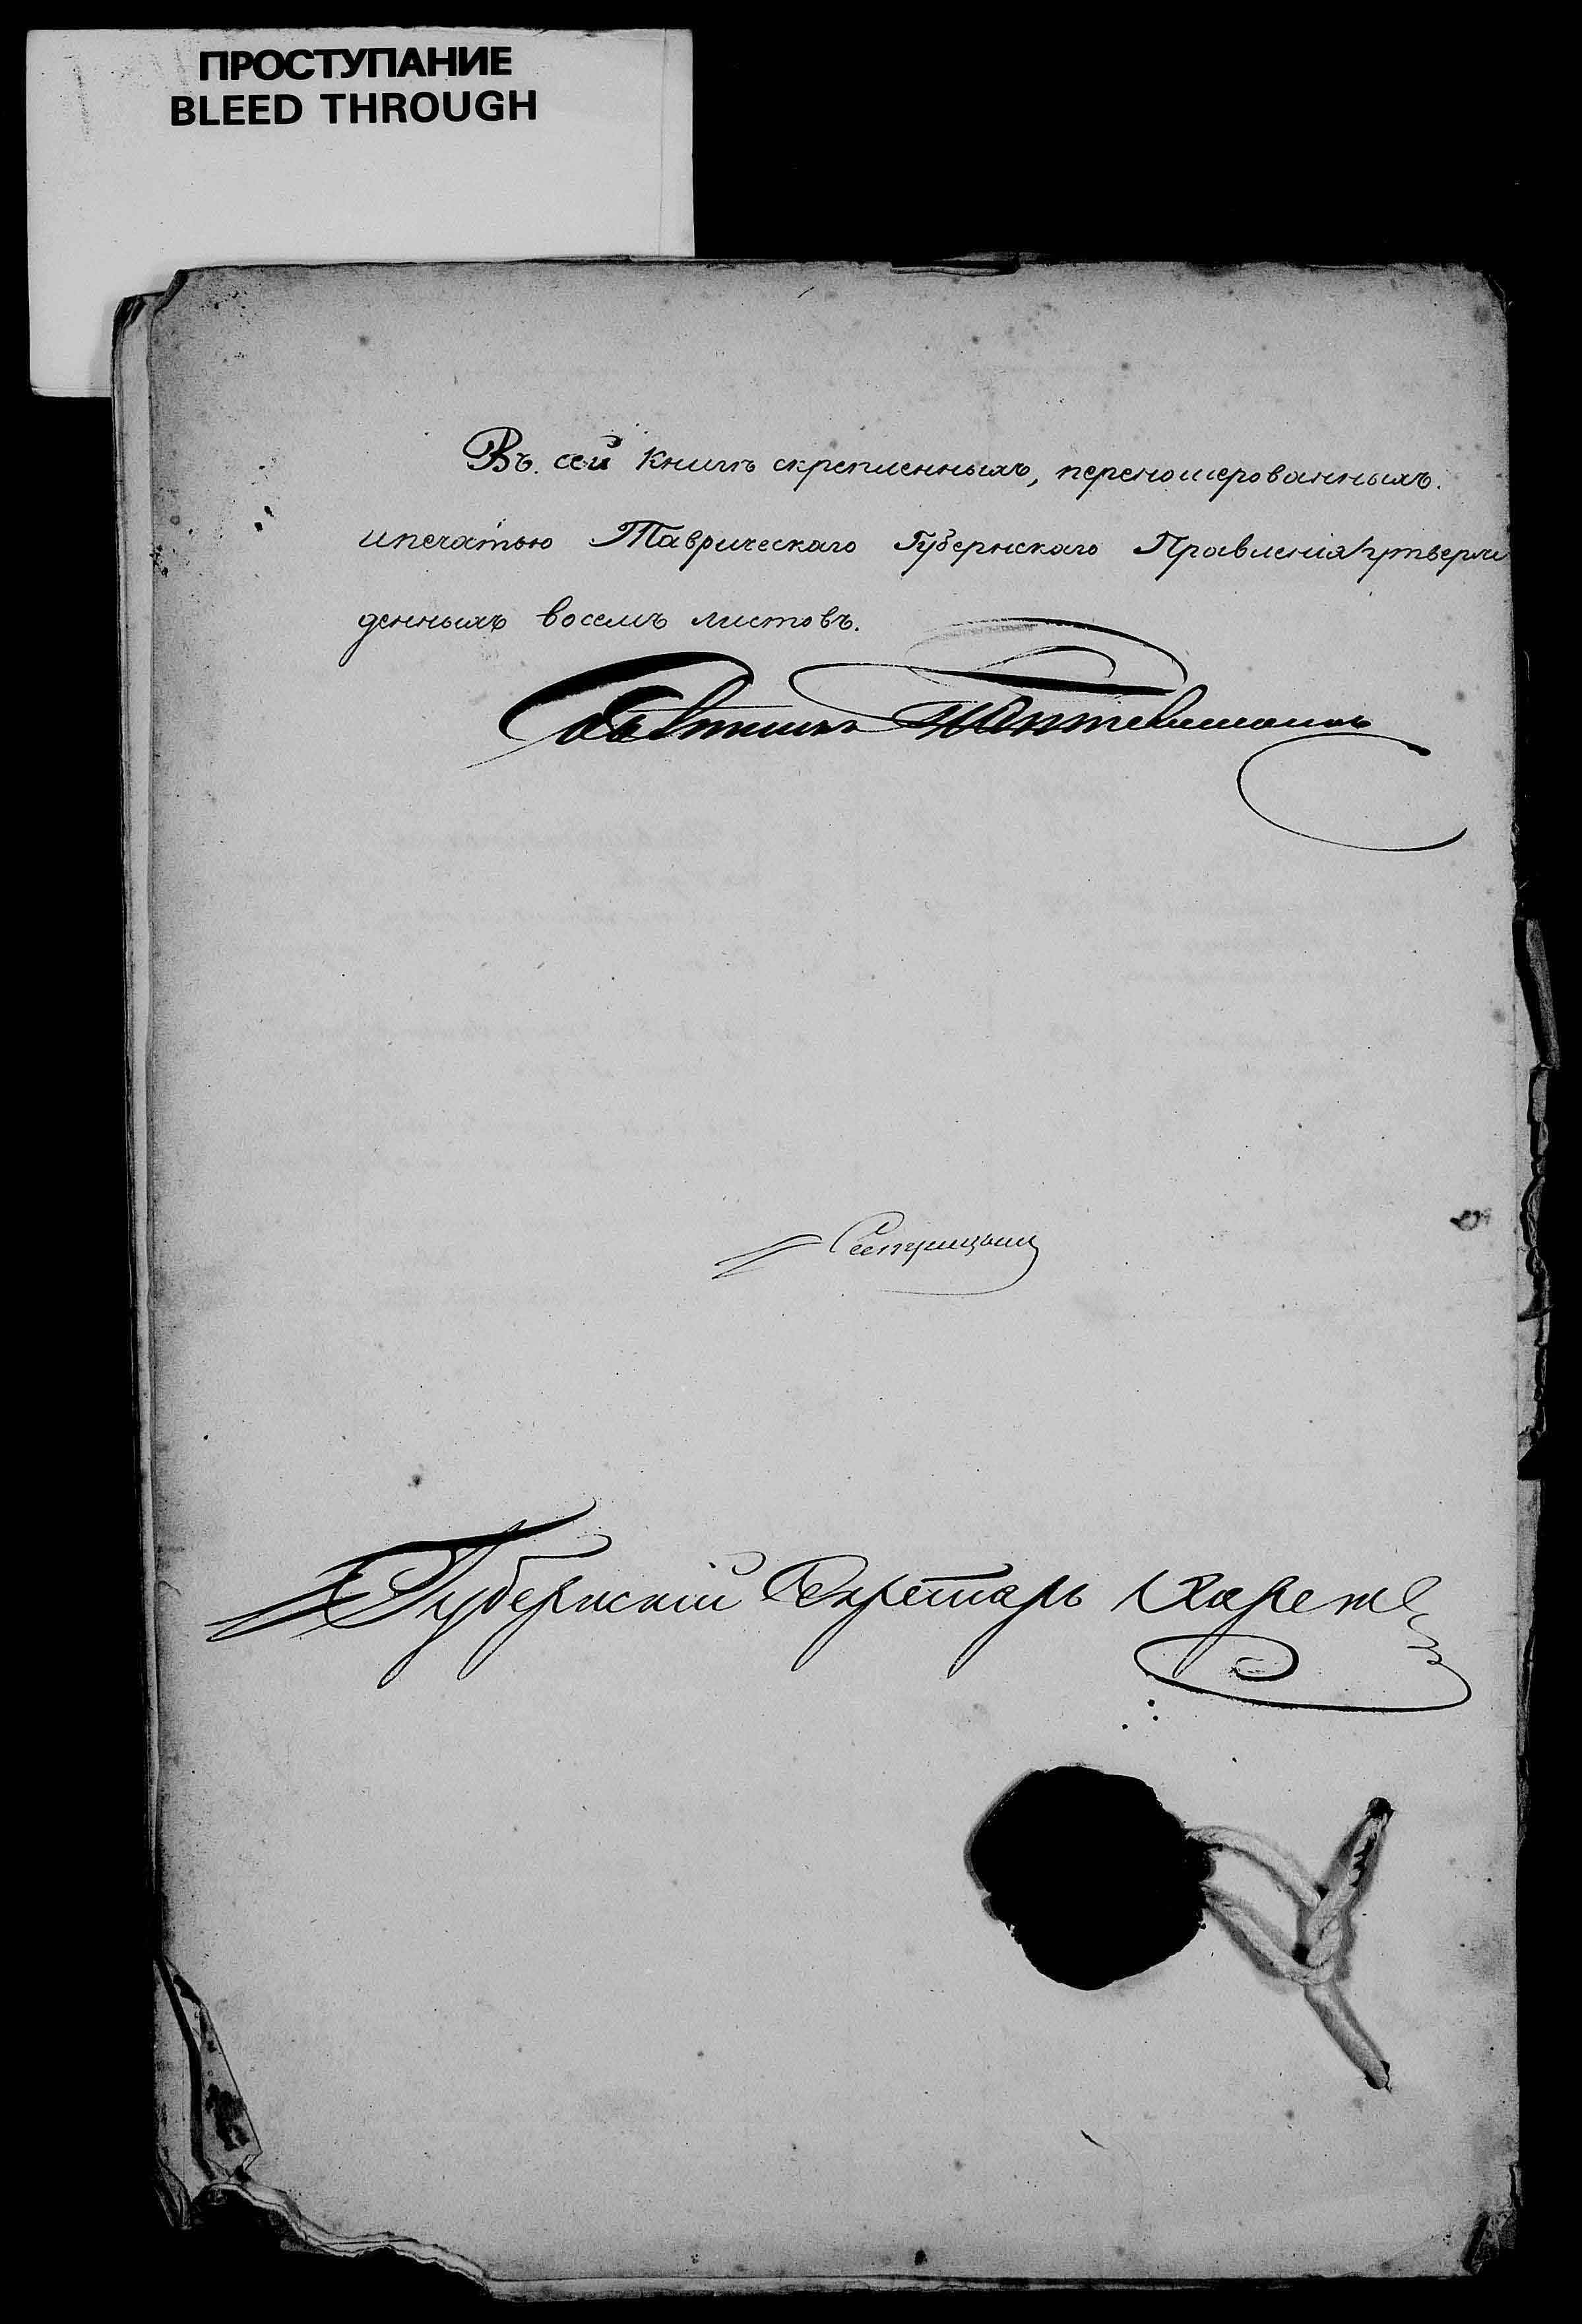 ПРОСТУПАНИЕ
BLEED THROUGH
Въ сей книгѣ скрепленныхъ, переношерованныхъ.
ипечатью Таврическаго Губернскаго Правленія утверж
денныхъ восемъ листовъ.
Совѣтникъ
Губернскій Секретарь